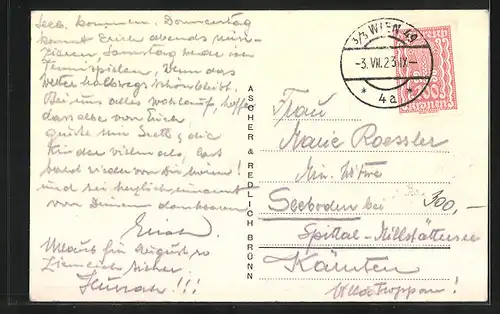 Seeb. kommen. Donnerstag
kommt Erich abends
Samstag werde ich
Tennisspielen, wenn das
Wetter halbwegs schön bleibt.
Bei uns alles wohlauf, hoffe
dasselbe von Euch,
grüße mir die
Kinder vielmals, laß
bald wieder von Dir hören!
und sei herzlichst umarmt
von Deinem dankbaren
Erich
Urlaub für August so
ziemlich sicher.
Hurrah!!!
ASCHER & REDLICH BRÜNN
3/3 WIEN 49
-3. VII. 23 IX-
* 4a *
Frau
Marie Roessler
Seeboden bei
300,-
Spittal-Millstättersee
Kärnten